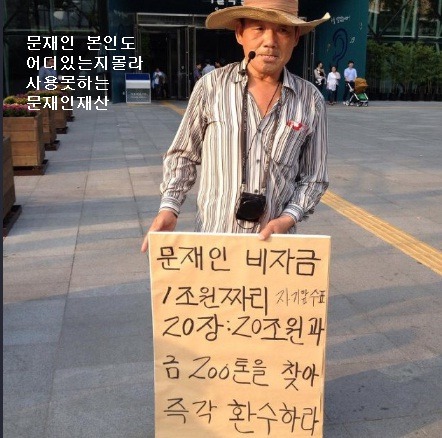 문재인 본인도
어디있는지몰라
사용못하는
문재인재산
문재인 비자금
1조원짜리 자기앞수표
20장:20조원과
금 200톤을 찾아
즉각 환수하라